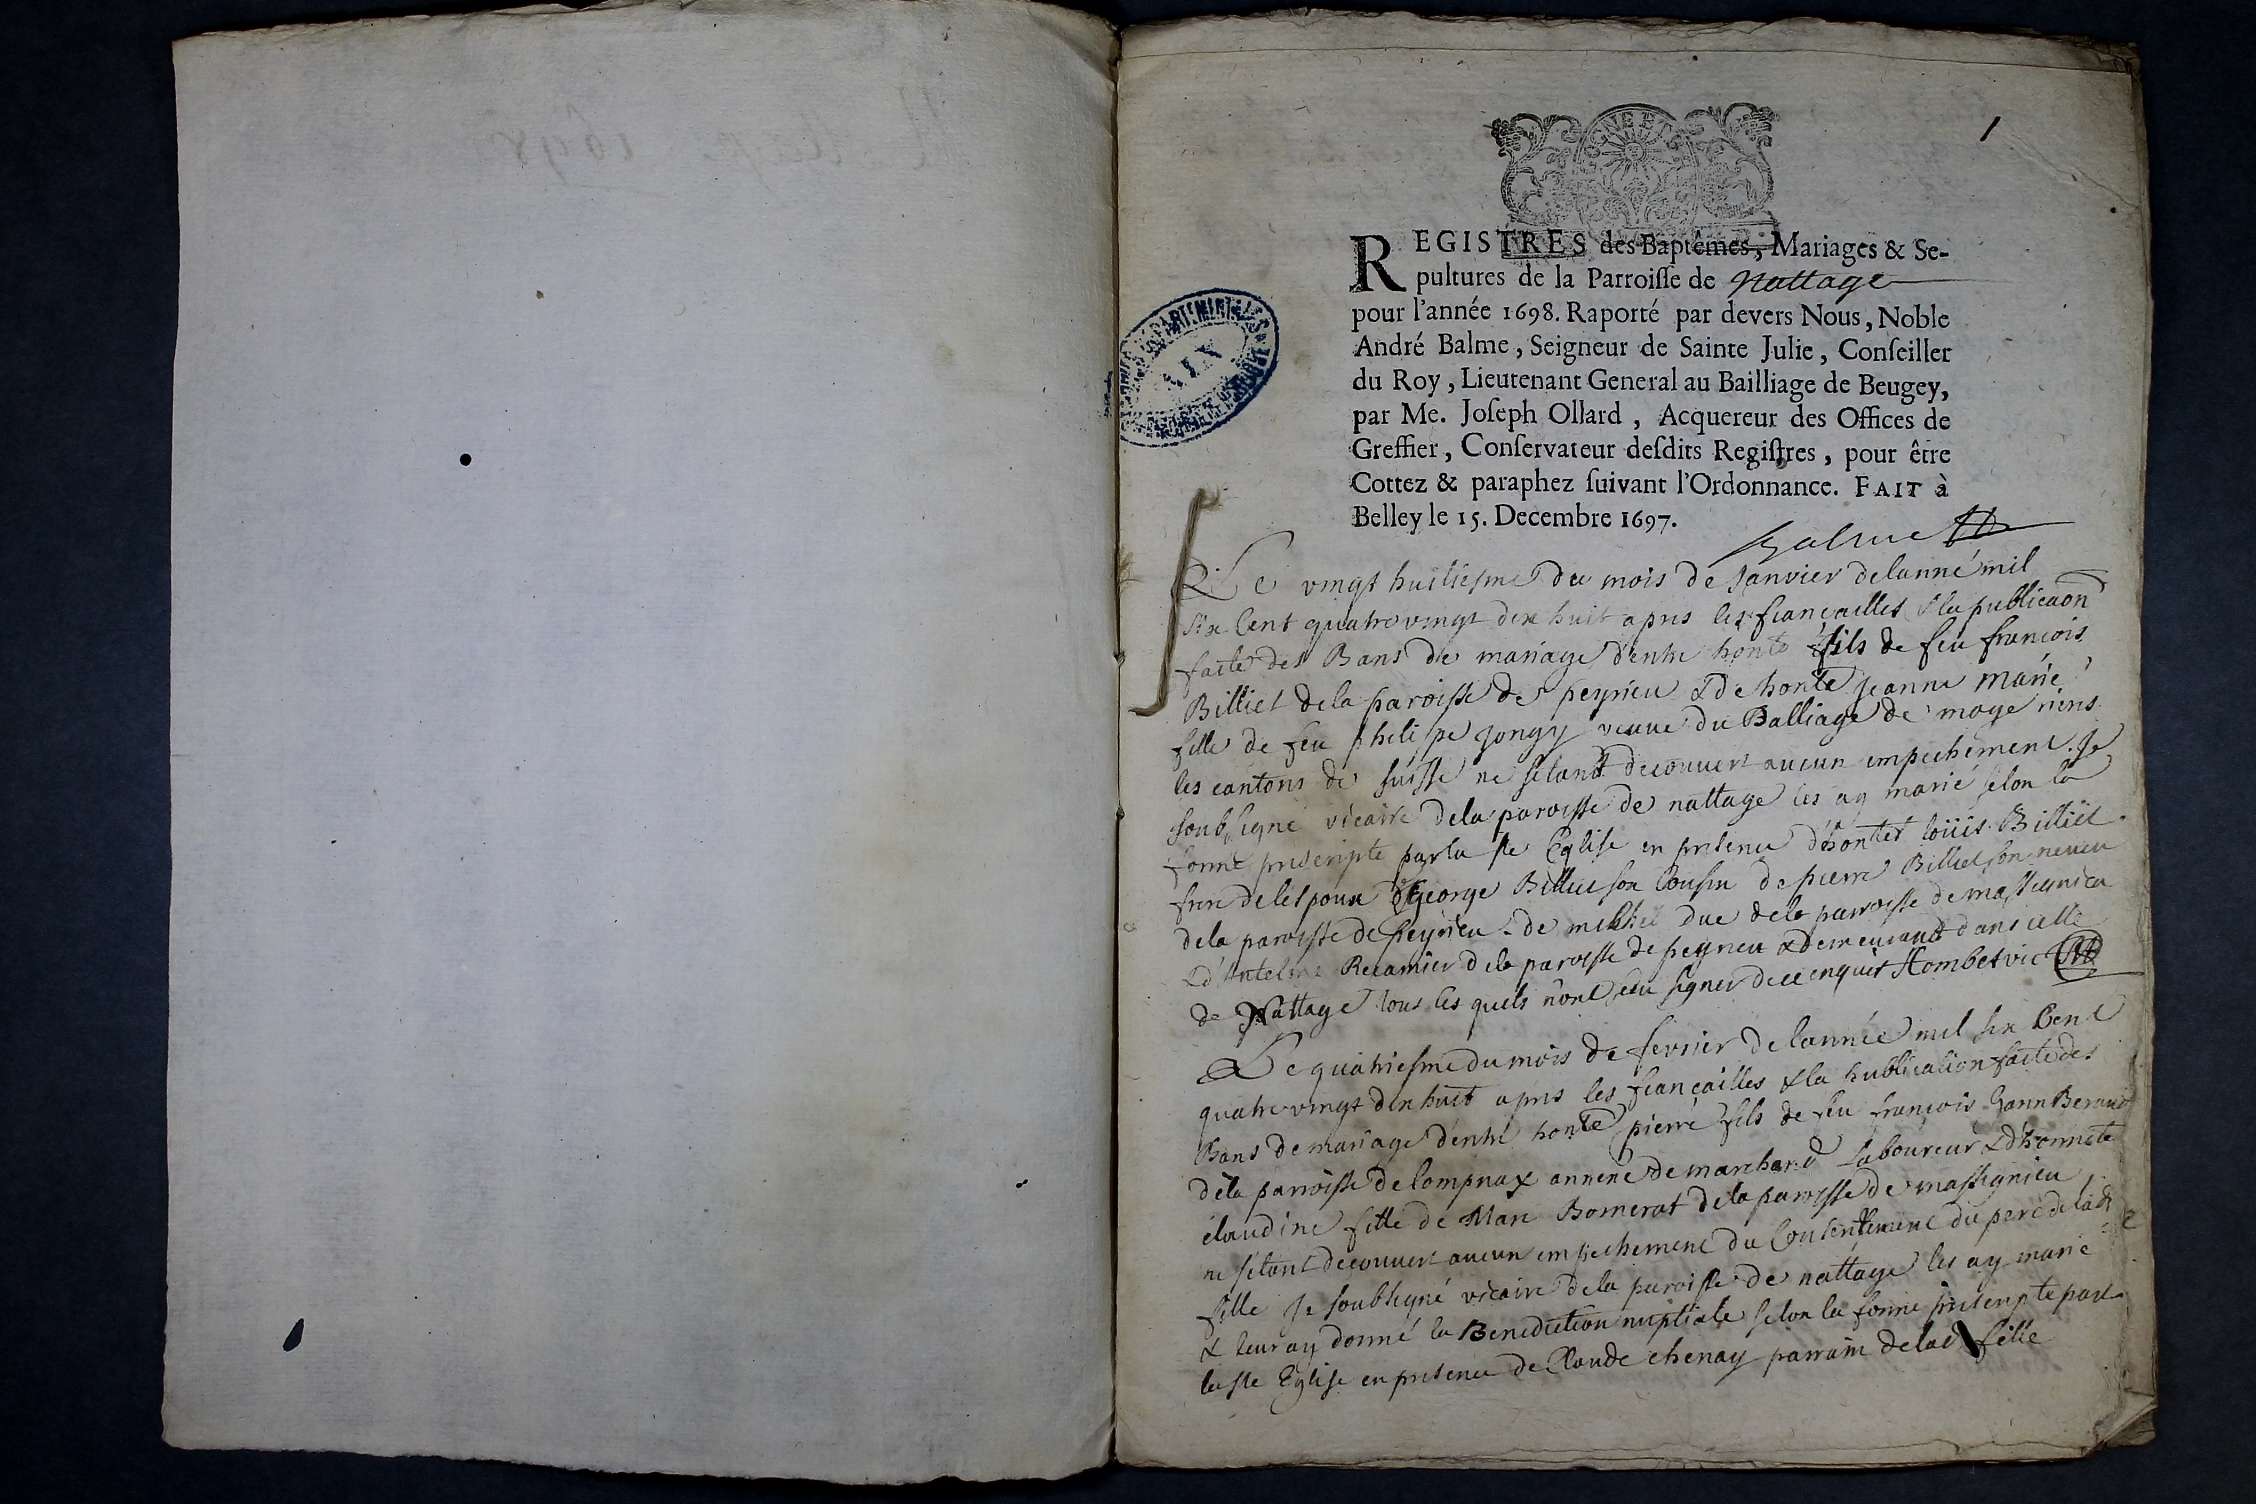 1
REGISTRES des Baptêmes, Mariages & Se-
pultures de la Parroisse de Nattage
pour l'année 1698. Raporté par devers Nous, Noble
André Balme, Seigneur de Sainte Julie, Conseiller
du Roy, Lieutenant General au Bailliage de Beugey,
par Me. Joseph Ollard, Acquereur des Offices de
Greffier, Conservateur desdits Registres, pour être
Cottez & paraphez suivant l'Ordonnance. FAIT à
Belley le 15. Decembre 1697.
Balme
AIN
Le vingt huitiesme du mois de Janvier delanné mil
six Cent quatrevingt dix huit apres les fiançailles & la publicaon
faite des Bans de mariage dentre honte fils de feu françois
Billiet dela paroisse de peyrieu & de honte jeanne Marie
fille de feu philipe veuve du Balliage de
les cantons de suisse ne setant decouvert aucun empechement. Je
soubsigné vicaire dela paroisse de nattage les ay marié selon la
forme prescripte par la ste Eglise en presence dhontes loüis Billiet
frere de lespoux George Billiet son Cousin de pierre Billiet son neveu
dela paroisse de Peyrieu de michel Duc dela parroisse de massignieu
& d'Antelme Recamier dela paroisse de peyrieu & demeurant dans celle
de Nattage tous les quels n'ont seu signer de ce enquis Hombet vic
Le quatriesme du mois de fevrier de lannée mil six Cent
quatrevingt dix huit apres les fiançailles & la publication faite des
Bans de mariage dentre honte pierre fils de feu françois
dela parroisse de lompnax annexe de marchand Laboureur & d'honnete
claudine fille de Marc Bomerat dela paroisse de massignieu
ne setant decouvert aucun empechement du Consentement du pere de lad
fille Je soubsigné vicaire dela paroisse de nattage les ay marié
& leur ay donné la Benediction nuptiale selon la forme prescripte par
la ste Eglise en presence de Claude chenay parrain delad fille